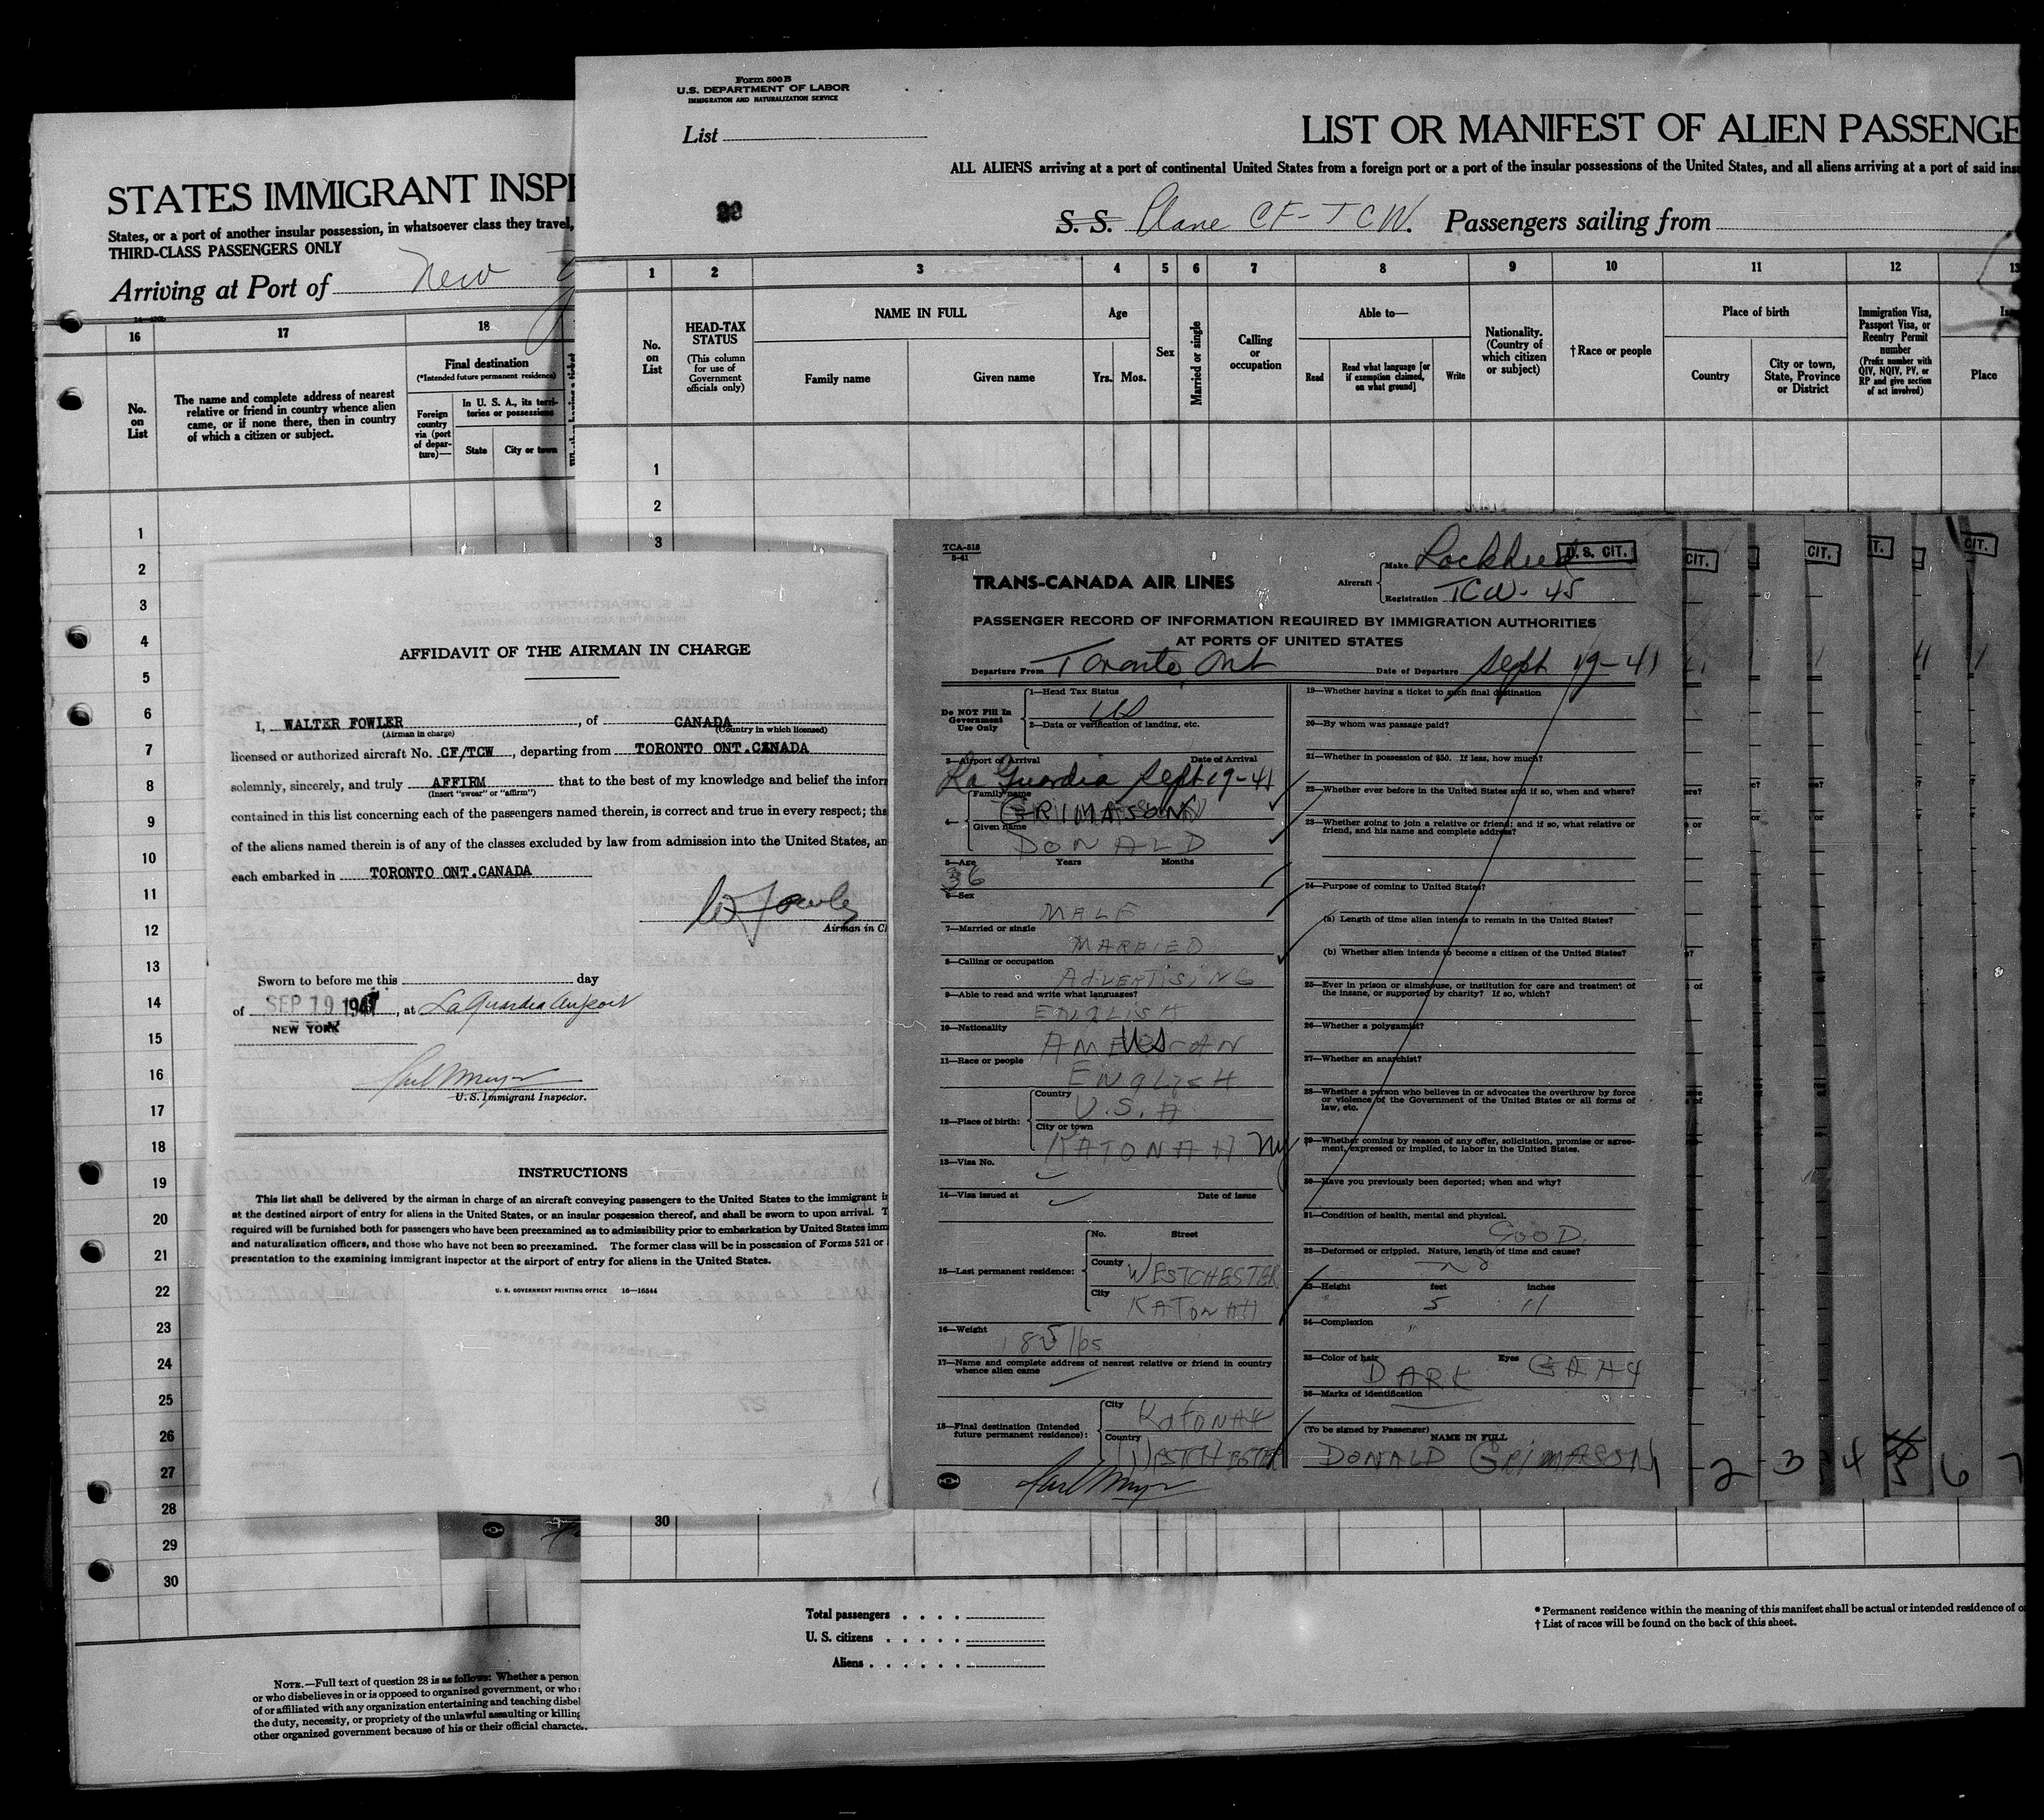 STATES IMMIGRANT INSPE
States, or a port of another insular possession, in whatsoever class they travel,
THIRD-CLASS PASSENGERS ONLY
Arriving at Port of New
16 17 18
No. on List
The name and complete address of nearest
relative or friend in country whence alien
came, or if none there, then in country
of which a citizen or subject.
Final destination
(*Intended future permanent residence)
Foreign
country
via (port
of depar-
ture)—
In U. S. A., its terri-
tories or possessions
State
City or town
1
2
3
4
5
6
7
8
9
10
11
12
13
14
15
16
17
18
19
20
21
22
23
24
25
26
27
28
29
30
NOTE.—Full text of question 28 is as follows: Whether a person
or who disbelieves in or is opposed to organized government, or who
of or affiliated with any organization entertaining and teaching disbel
the duty, necessity, or propriety of the unlawful assaulting or killing
other organized government because of his or their official character.
Form 500 B
U.S. DEPARTMENT OF LABOR
IMMIGRATION AND NATURALIZATION SERVICE
List
LIST OR MANIFEST OF ALIEN PASSENGE
ALL ALIENS arriving at a port of continental United States from a foreign port or a port of the insular possessions of the United States, and all aliens arriving at a port of said insu
S. S. Plane CF-TCW. Passengers sailing from
1 2 3 4 5 6 7 8 9 10 11 12 13
No.
on
List
HEAD-TAX
STATUS
(This column
for use of
Government
officials only)
NAME IN FULL
Family name
Given name
Age
Yrs. Mos.
Sex
Married or single
Calling
or
occupation
Able to—
Read
Read what language [or
if exemption claimed,
on what ground]
Write
Nationality.
(Country of
which citizen
or subject)
†Race or people
Place of birth
Country
City or town,
State, Province
or District
Immigration Visa,
Passport Visa, or
Reentry Permit
number
(Prefix number with
QIV, NQIV, PV, or
RP and give section
of act involved)
Place
1
2
3
30
Total passengers
U. S. citizens
Aliens
* Permanent residence within the meaning of this manifest shall be actual or intended residence of o
† List of races will be found on the back of this sheet.
AFFIDAVIT OF THE AIRMAN IN CHARGE
I, WALTER FOWLER, of CANADA
(Airman in charge) (Country in which licensed)
licensed or authorized aircraft No. CF/TCW, departing from TORONTO ONT.CANADA
solemnly, sincerely, and truly AFFIRM that to the best of my knowledge and belief the infor
(Insert "swear" or "affirm")
contained in this list concerning each of the passengers named therein, is correct and true in every respect; tha
of the aliens named therein is of any of the classes excluded by law from admission into the United States, an
each embarked in TORONTO ONT.CANADA
W Fowler
Airman in Ch
Sworn to before me this day
of SEP 19 1941, at LaGuardia Airport
NEW YORK
U. S. Immigrant Inspector.
INSTRUCTIONS
This list shall be delivered by the airman in charge of an aircraft conveying passengers to the United States to the immigrant i
at the destined airport of entry for aliens in the United States, or an insular possession thereof, and shall be sworn to upon arrival. T
required will be furnished both for passengers who have been preexamined as to admissibility prior to embarkation by United States imm
and naturalization officers, and those who have not been so preexamined. The former class will be in possession of Forms 521 or
presentation to the examining immigrant inspector at the airport of entry for aliens in the United States.
U. S. GOVERNMENT PRINTING OFFICE 16—16544
TCA-518
5-41
TRANS-CANADA AIR LINES
Aircraft
Make Lockheed
U. S. CIT.
Registration TCW-45
PASSENGER RECORD OF INFORMATION REQUIRED BY IMMIGRATION AUTHORITIES
AT PORTS OF UNITED STATES
Departure From Toronto, Ont Date of Departure Sept 19-41
Do NOT Fill In
Government
Use Only
1—Head Tax Status
US
2—Data or verification of landing, etc.
3—Airport of Arrival Date of Arrival
La Guardia Sept 19-41
4—
Family name
GRIMASON
Given name
DONALD
5—Age Years Months
36
6—Sex
MALE
7—Married or single
MARRIED
8—Calling or occupation
ADVERTISING
9—Able to read and write what languages?
ENGLISH
10—Nationality
AMERICAN US
11—Race or people
ENGLISH
12—Place of birth:
Country
U.S.A
City or town
KATONAH NY
13—Visa No.
14—Visa issued at Date of issue
15—Last permanent residence:
No. Street
County WESTCHESTER
City KATONAH
16—Weight
185 lbs
17—Name and complete address of nearest relative or friend in country
whence alien came
18—Final destination (Intended
future permanent residence):
City KATONAH
Country WESTCHESTER
19—Whether having a ticket to such final destination
20—By whom was passage paid?
21—Whether in possession of $50. If less, how much?
22—Whether ever before in the United States and if so, when and where?
23—Whether going to join a relative or friend; and if so, what relative or
friend, and his name and complete address?
24—Purpose of coming to United States?
(a) Length of time alien intends to remain in the United States?
(b) Whether alien intends to become a citizen of the United States?
25—Ever in prison or almshouse, or institution for care and treatment of
the insane, or supported by charity? If so, which?
26—Whether a polygamist?
27—Whether an anarchist?
28—Whether a person who believes in or advocates the overthrow by force
or violence of the Government of the United States or all forms of
law, etc.
29—Whether coming by reason of any offer, solicitation, promise or agree-
ment, expressed or implied, to labor in the United States.
30—Have you previously been deported; when and why?
31—Condition of health, mental and physical.
GOOD.
32—Deformed or crippled. Nature, length of time and cause?
no
33—Height feet inches
5 11
34—Complexion
35—Color of hair Eyes
DARK GRAY
36—Marks of identification
(To be signed by Passenger)
NAME IN FULL
DONALD GRIMASON
CIT.
CIT.
T.
CIT.
1 2 3 4 5 6 7